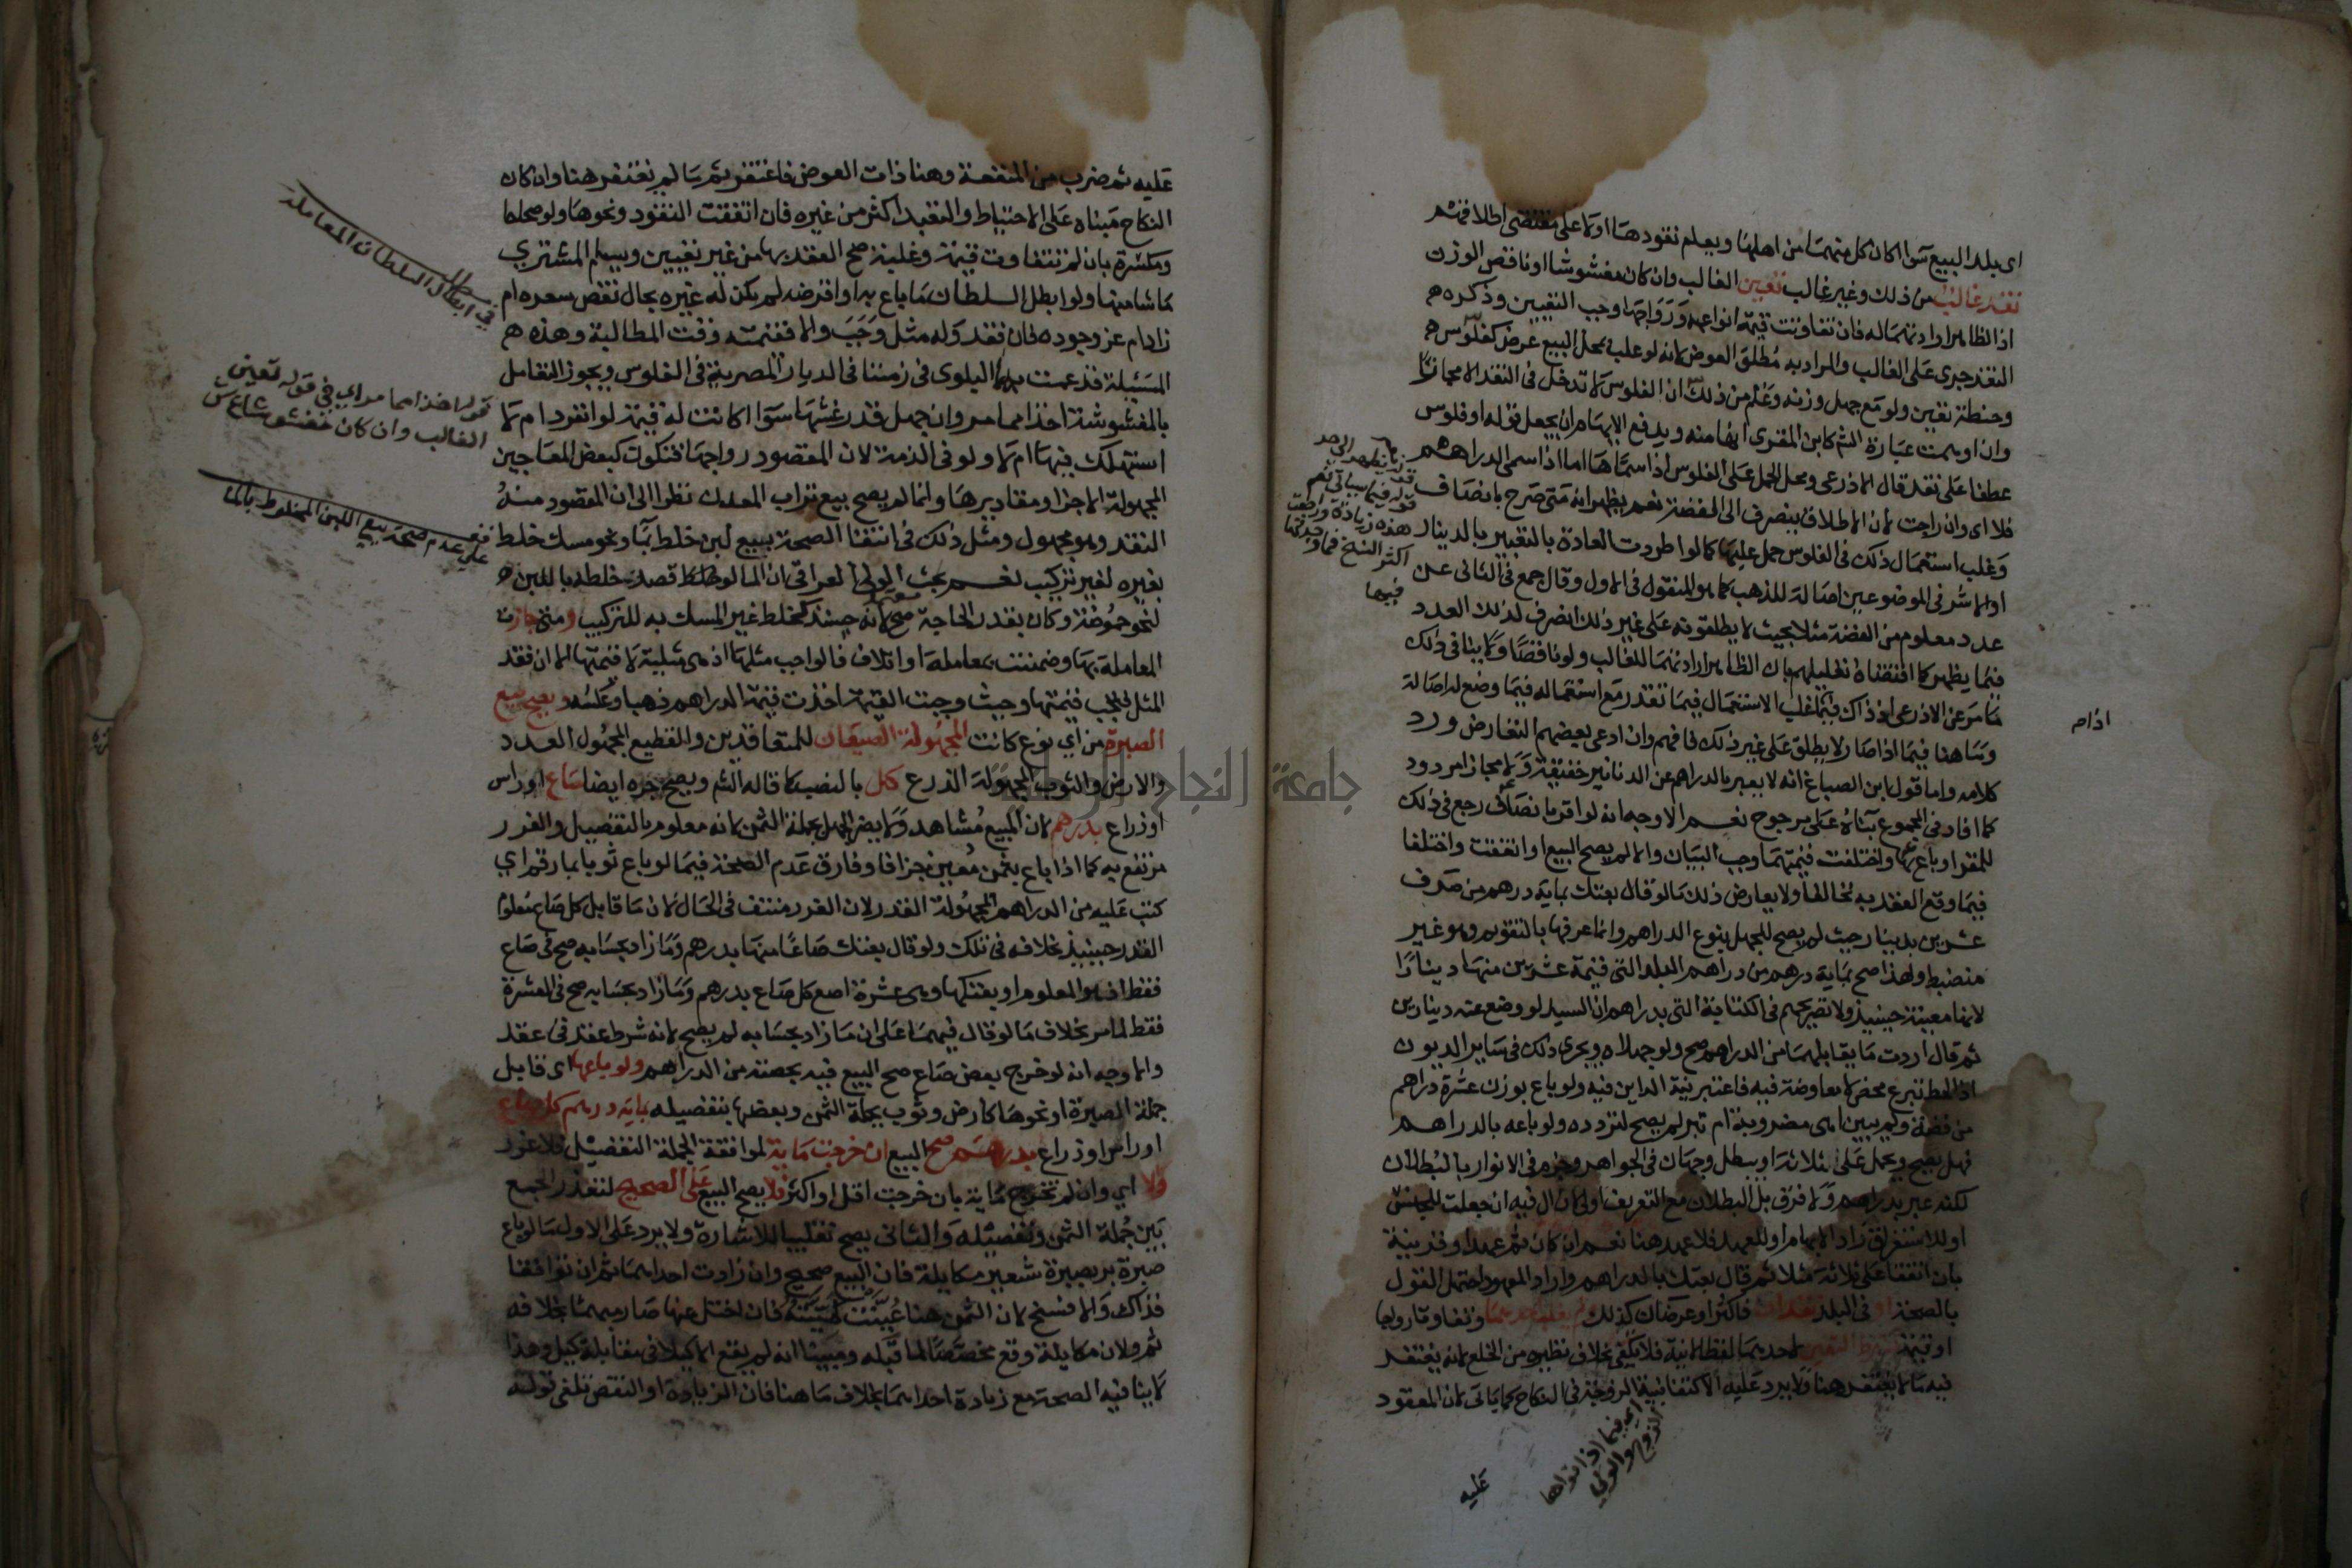 اى بلد البيع سوا اكان كل منهما من اهلها ويعلم نقودها اولا على مقتضى اطلاقهم
نقد غالب من ذلك وغير غالب تعين الغالب وان كان مغشوشا او ناقص الوزن
اذ الظاهر ارادتهما له فان تفاوتت قيمة انواعه ورواجها وجب التعيين وذكره
النقد جرى على الغالب والمراد به مطلق العوض لانه لو غلب بمحل البيع عرض كفلوس
وحنطة تعين ولو مع جهل وزنه وعلم من ذلك ان الفلوس لا تدخل في النقد الا مجازا
وان اوهمت عبارة الشم كابن المقرى انها منه ويدفع الايهام ان يجعل قوله او فلوس
عطفا على نقد قال الاذرعى ومحل الحمل على الفلوس اذا سماها اما اذا سمى الدراهم
فلا اى وان راجت لان الاطلاق ينصرف الى الفضة نعم يظهر انه متى صرح بانصاف
وغلب استعمال ذلك في الفلوس حمل عليها كما لو اطردت العادة بالتعبير بالدينار
او الاشرفى الموضوعين اصالة للذهب كما هو المنقول في الاول وقال جمع في الثانى عن
عدد معلوم من الفضة مثلا بحيث لا يطلقونه على غير ذلك انصرف لذلك العدد
فيما يظهر كما اقتضاه تعليلهم بان الظاهر ارادتهما للغالب ولو ناقصا ولا ينافى ذلك
ما مر عن الاذرعى اذ ذاك فيما غلب الاستعمال فيما تقدر مع استعماله فيما وضع له اصالة
وما هنا فيما اذا صار لا يطلق على غير ذلك فافهم وان ادعى بعضهم التعارض ورد
كلامه واما قول ابن الصباغ انه لا يعبر بالدراهم عن الدنانير حقيقة ولا مجازا مردود
كما افاده في المجموع بناء على مرجوح نعم الاوجه انه لو اقر بانصاف رجع في ذلك
للمقر او باع بها واختلفت قيمتهما وجب البيان والا لم يصح البيع او اتفقت واختلفا
فيما وقع العقد به تحالفا ولا يعارض ذلك ما لو قال بعتك بماية درهم من صرف
عشرين بدينار حيث لم يصح للجهل بنوع الدراهم وانما عرفها بالتقويم وهو غير
منضبط ولهذا صح بماية درهم من دراهم البلد التى قيمة عشرين منها دينارا
لانها معينة حينيذ ولا تصريحهم في الكتابة التى بدراهم ان السيد لو وضع عنه دينارين
ثم قال اردت ما يقابلهما من الدراهم صح ولو جهلاه ويجرى ذلك في ساير الديون
اذ الحط تبرع محض لا معاوضة فيه فاعتبر نية الداين فيه ولو باع بوزن عشرة دراهم
من فضة ولم يبين اهى مضروبة ام تبر لم يصح لتردده ولو باعه بالدراهم
فهل يصح ويحمل على ثلاثة او يبطل وجهان في الجواهر وجزم في الانوار بالبطلان
لكنه عبر بدراهم ولا فرق بل البطلان مع التعريف اولى لان ال فيه ان جعلت للجنس
او للاستغراق زاد الابهام او للعهد فلا عهد هنا نعم ان كان ثم عهد او قرينة
بان اتفقا على ثلاثة مثلا ثم قال بعتك بالدراهم واراد المعهود احتمل القول
بالصحة او في البلد نقدان فاكثر او عرضان كذلك ولم يغلب احدهما وتفاوتا رواجا
او قيمة شرط التعيين لاحدهما لفظا لا نية فلا يكفى بخلاف نظيره من الخلع لانه يغتفر
فيه ما لا يغتفر هنا ولا يرد عليه الاكتفا بنية الزوجة في النكاح كما ياتى لان المعقود
اى فيما اذا نواها
الزوج والولي
عليه
هذه زيادة
اكثر النسخ
فيها
عليه ثم ضرب من المنفعة وهنا ذات العوض فاغتفر ثم ما لم يغتفر هنا وان كان
النكاح مبناه على الاحتياط والتعبد اكثر من غيره فان اتفقت النقود ونحوها ولو صحاحا
ومكسرة بان لم تتفاوت قيمة وغلبة صح العقد بها من غير تعيين ويسلم المشترى
ما شا منها ولو ابطل السلطان ما باع به او اقرضه لم يكن له غيره بحال نقص سعره ام
زاد ام عز وجوده فان فقد وله مثل وجب والا فقيمته وقت المطالبة وهذه
المسئلة قد عمت بها البلوى في زمننا في الديار المصرية في الفلوس ويجوز التعامل
بالمغشوشة اخذا مما مر وان جهل قدر غشها سوا اكانت له قيمة لو انفرد ام لا
استهلك فيها ام لا ولو في الذمة لان المقصود رواجها فتكون كبعض المعاجين
المجهولة الاجزا ومقاديرها وانما لم يصح بيع تراب المعدن نظرا الى ان المقصود منه
النقد وهو مجهول ومثل ذلك في انتفا الصحة بيع لبن خلط بما ونحو مسك خلط
بغيره لغير تركيب نعم بحث الولى العراقى ان الما لو قصد خلطه باللبن
لنحو حموضة وكان بقدر الحاجة صح لانه حينيذ كخلط غير المسك به للتركيب ومتى جازت
المعاملة بها وضمنت بمعاملة او اتلاف فالواجب مثلها اذ هى مثلية لا قيمتها الا ان فقد
المثل فتجب قيمتها وحيث وجبت القيمة اخذت قيمة الدراهم ذهبا وعكسه ويصح بيع
الصبرة من اي نوع كانت المجهولة الصيعان للمتعاقدين والقطيع المجهول العدد
والارض والثوب المجهولة الذرع كل بالنصب كما قاله الشم ويصح جره ايضا صاع او راس
او ذراع بدرهم لان المبيع مشاهد ولا يضر الجهل بجملة الثمن لانه معلوم بالتفصيل والغرر
مرتفع به كما اذا باع بثمن معين جزافا وفارق عدم الصحة فيما لو باع ثوبا بما رقم اي
كتب عليه من الدراهم المجهولة القدر لان الغرر منتف في الحال لان ما قابل كل صاع معلوم
القدر حينيذ بخلافه في تلك ولو قال بعتك صاعا منها بدرهم وما زاد بحسابه صح في صاع
فقط اذ هو المعلوم او بعتكها وهى عشرة اصع كل صاع بدرهم وما زاد بحسابه صح في العشرة
فقط لما مر بخلاف ما لو قال فيهما على ان ما زاد بحسابه لم يصح لانه شرط عقد في عقد
والاوجه انه لو خرج بعض صاع صح البيع فيه بحصته من الدراهم ولو باعها اى قابل
جملة الصبرة او نحوها كارض وثوب بجملة الثمن وبعضها بتفصيله بماية درهم كل صاع
او راس او ذراع بدرهم صح البيع ان خرجت ماية لموافقة الجملة التفصيل فلا غرر
والا اي وان لم تخرج ماية بان خرجت اقل او اكثر فلا يصح البيع على الصحيح لتعذر الجمع
بين جملة الثمن وتفصيله والثانى يصح تغليبا للاشارة ولا يرد على الاول ما لو باع
صبرة بر بصبرة شعير مكايلة فان البيع صحيح وان زادت احداهما ثم ان توافقا
فذاك والا فسخ لان الثمن هنا عينت كميته فان اختل عنها صار مبهما بخلافه
ثم ولان مكايلة وقع مخصصا لما قبله ومبينا انه لم يقع الا كيلا في مقابلة كيل وهذا
لا ينافيه الصحة مع زيادة احداهما بخلاف ما هنا فان الزيادة او النقص تلغى قوله
في ابطال السلطان المعاملة
قوله اخذا مما مر اي في قوله تعين
الغالب وان كان مغشوشا
على عدم صحة بيع اللبن المخلوط بالما